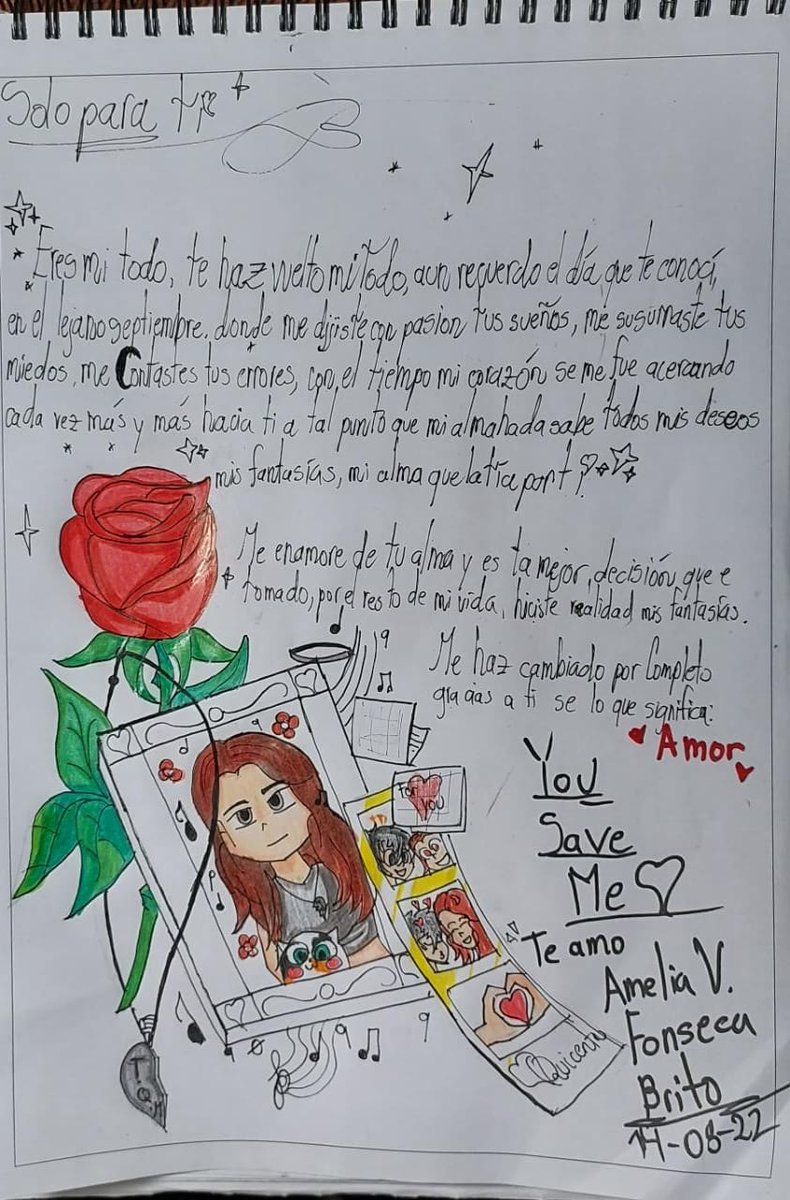 Solo para ti
Eres mi todo, te haz vuelto mi todo, aun recuerdo el día que te conocí,
en el lejano septiembre. donde me dijiste con pasion tus sueños, me susurraste tus
miedos, me Contastes tus errores, con el tiempo mi corazón se me fue acercando
cada vez más y más hacia ti a tal punto que mi almahada sabe todos mis deseos
mis fantasías, mi alma que latía por ti
Me enamore de tu alma y es la mejor decisión que e
tomado, por el resto de mi vida, hiciste realidad mis fantasías.
Me haz cambiado por Completo
gracias a ti se lo que significa:
Amor
You
Save
Me
Te amo
Amelia V.
Fonseca
Brito
14-08-22
For
you
T
Q.M